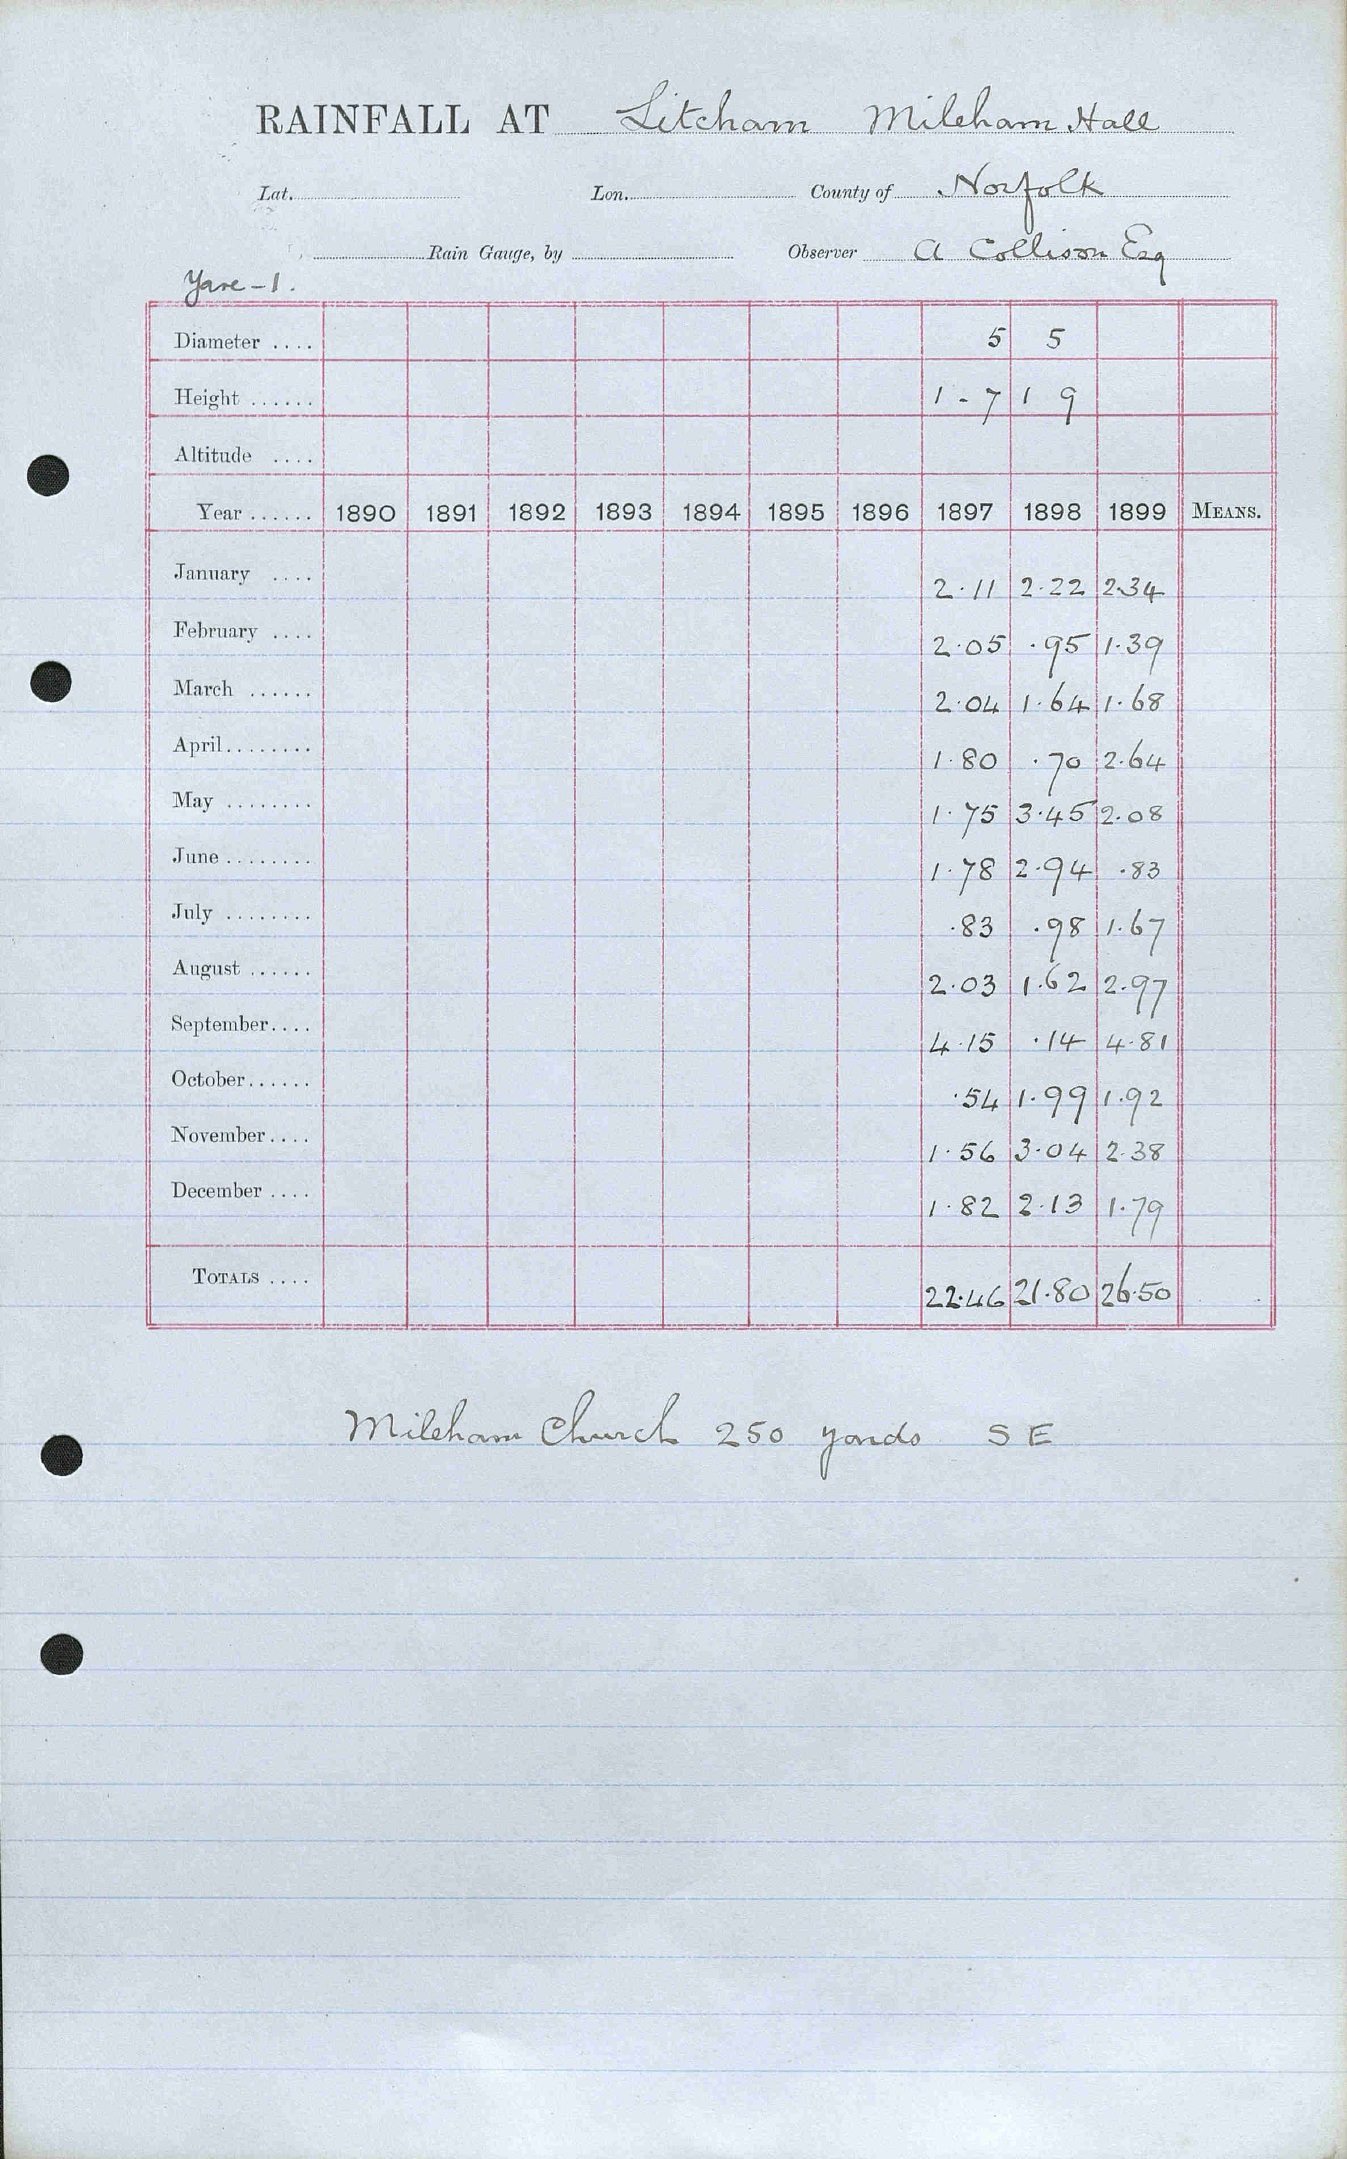 RAINFALL AT Litcham Mileham Hall
Lat. Lon. County of Norfolk
Rain Gauge, by Observer A Collison Esq
Yare-1.
Diameter .... 5 5
Height ...... 1-7 1 9
Altitude ....
Year ...... 1890 1891 1892 1893 1894 1895 1896 1897 1898 1899 MEANS.
January .... 2.11 2.22 2.34
February .... 2.05 .95 1.39
March ...... 2.04 1.64 1.68
April ........ 1.80 .70 2.64
May ........ 1.75 3.45 2.08
June ........ 1.78 2.94 .83
July ........ .83 .98 1.67
August ...... 2.03 1.62 2.97
September .... 4.15 .14 4.81
October ...... .54 1.99 1.92
November .... 1.56 3.04 2.38
December .... 1.82 2.13 1.79
TOTALS .... 22.46 21.80 26.50
Mileham Church 250 yards S E